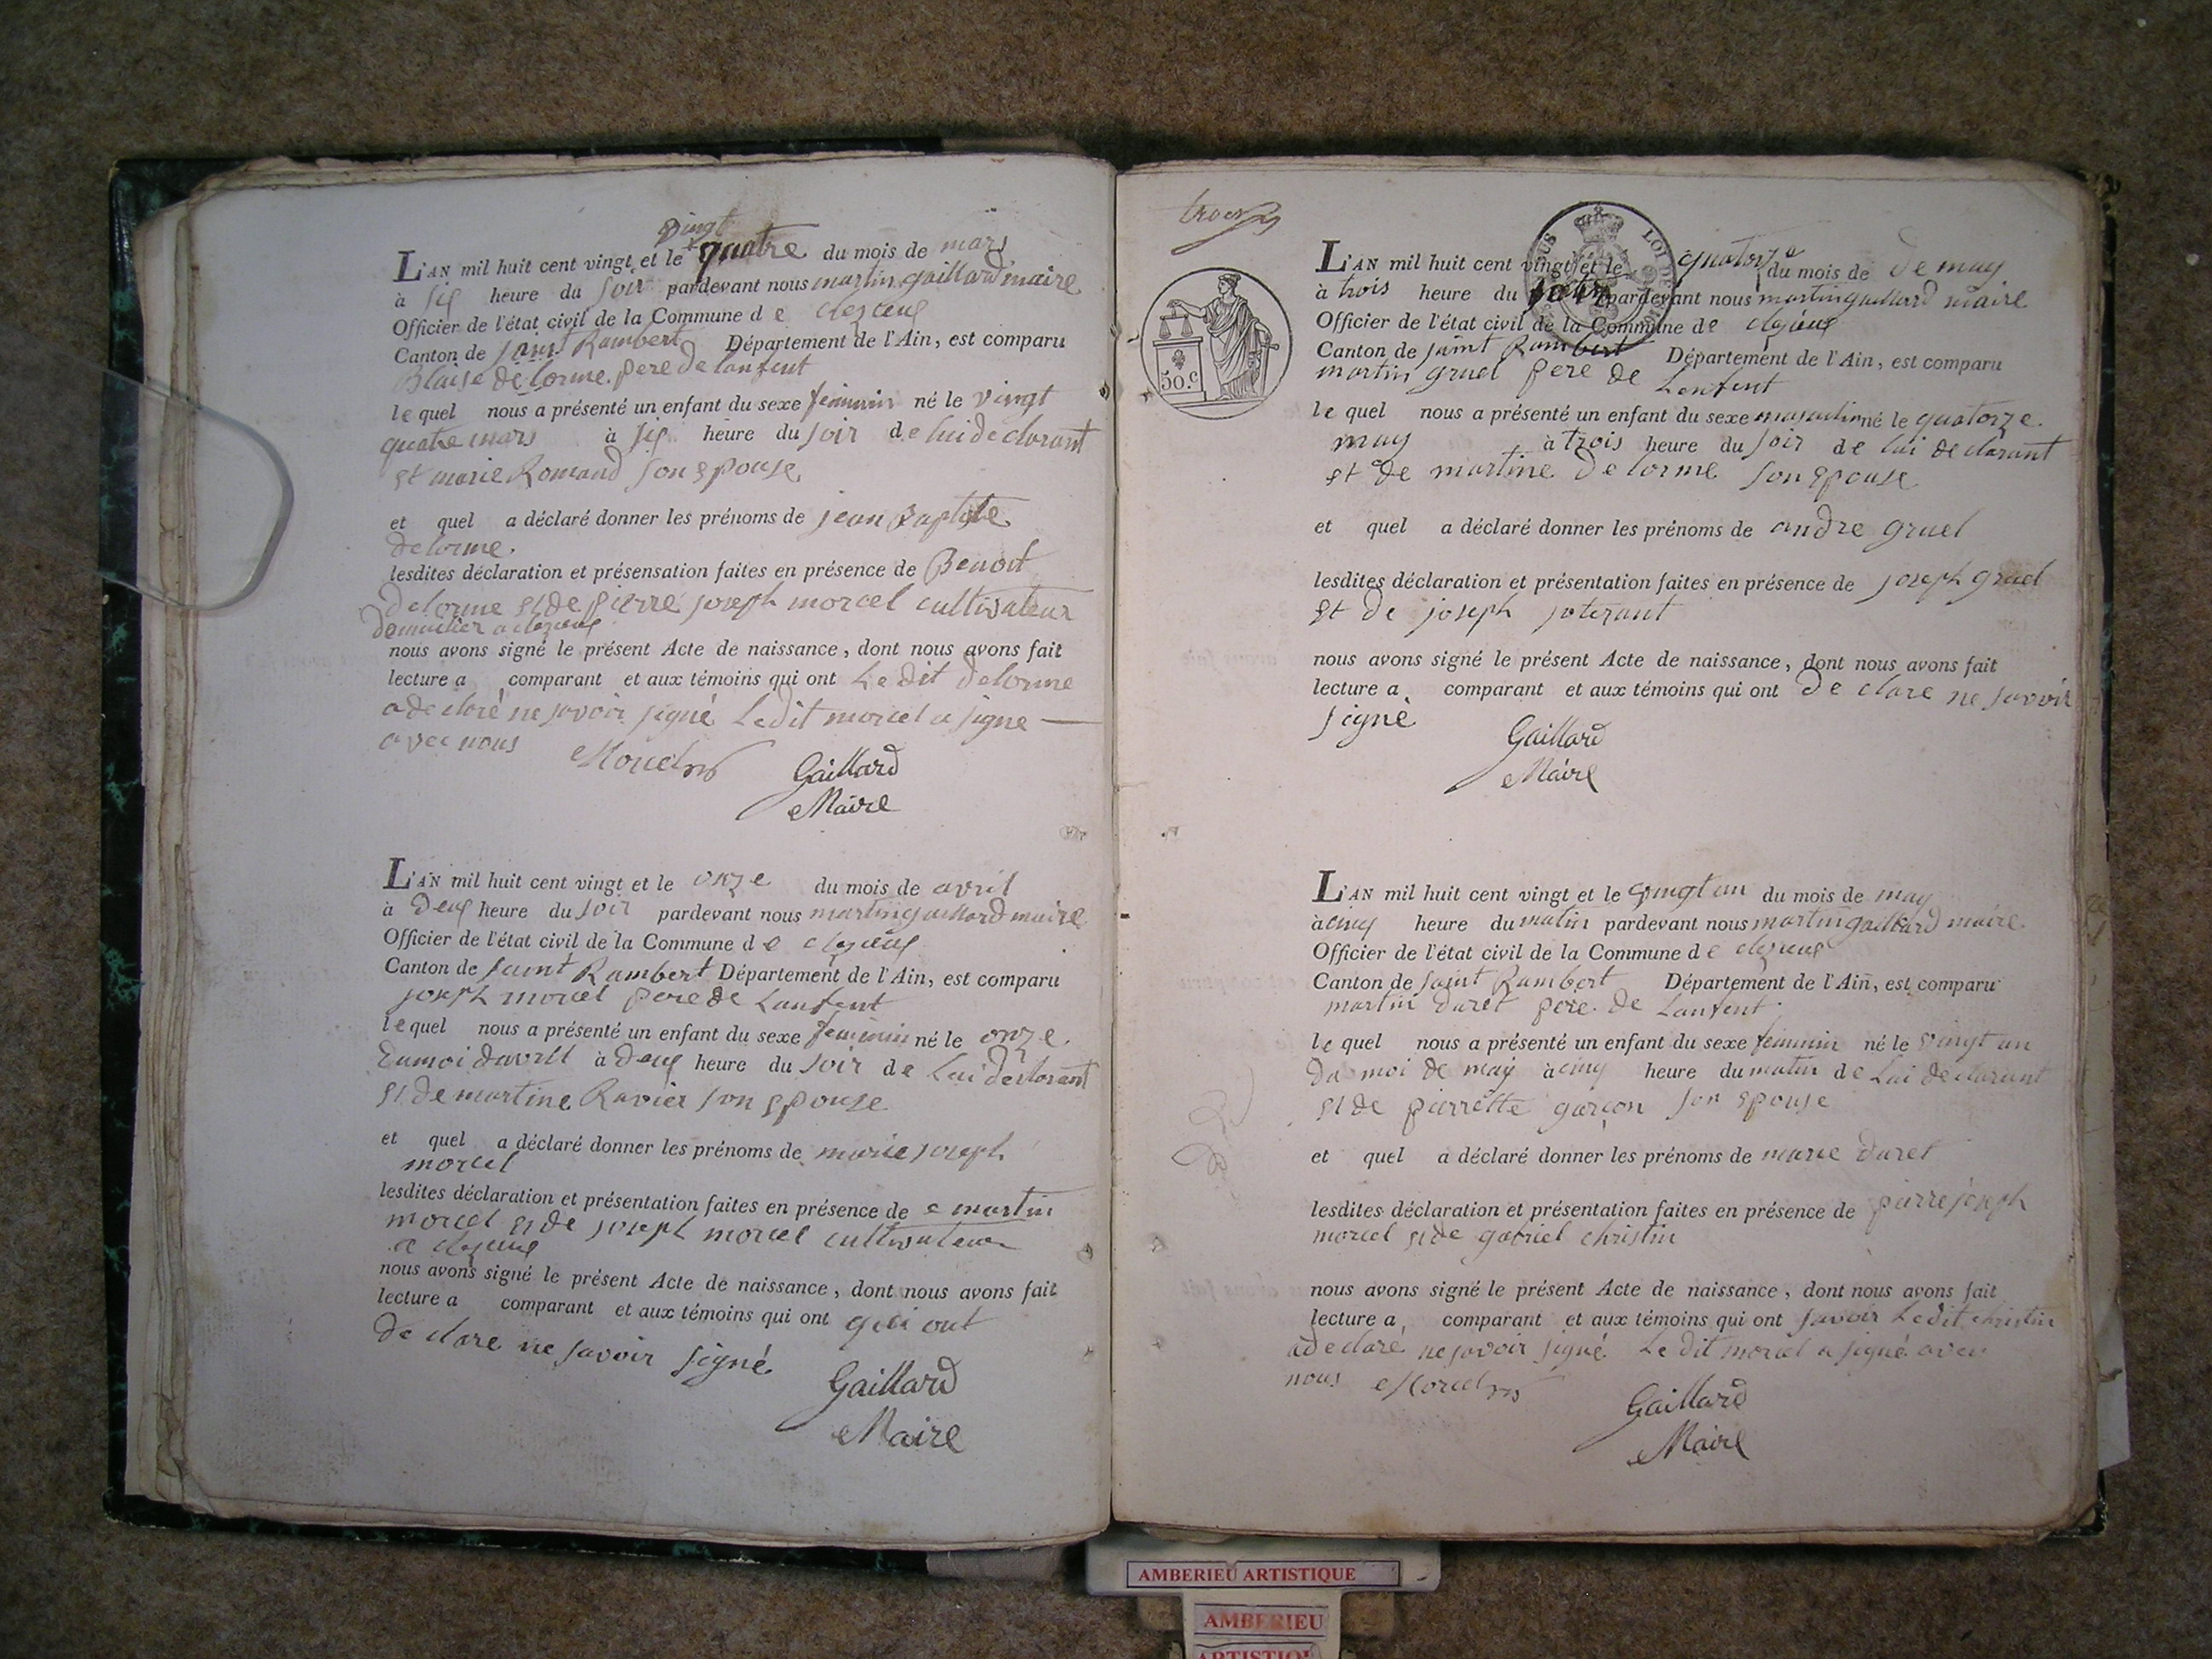 vingt
L'AN mil huit cent vingt et le quatre du mois de mars
à six heure du soir pardevant nous martin gaillard maire
Officier de l'état civil de la Commune d e cleyzeux
Canton de saint Rambert Département de l'Ain, est comparu
Blaise delorme pere de lanfent
le quel nous a présenté un enfant du sexe feminin né le vingt
quatre mars à six heure du soir de lui declarant
et marie Romand son epouse
et quel a déclaré donner les prénoms de jean Baptiste
delorme.
lesdites déclaration et présensation faites en présence de Benoit
delorme et de pierre joseph morcel cultivateur
domicilier a cleyzeux
nous avons signé le présent Acte de naissance, dont nous avons fait
lecture a comparant et aux témoins qui ont Ledit delorme
a declaré ne savoir signé Ledit morcel a signe
avec nous Morcel
Gaillard
Maire
L'AN mil huit cent vingt et le onze du mois de avril
à deux heure du soir pardevant nous martin gaillard maire
Officier de l'état civil de la Commune d e cleyzeux
Canton de saint Rambert Département de l'Ain, est comparu
joseph morcel pere de Lanfent
le quel nous a présenté un enfant du sexe feminin né le onze
du moi davril à deux heure du soir de Lui declarant
et de martine Ravier son epouse
et quel a déclaré donner les prénoms de marie joseph
morcel
lesdites déclaration et présentation faites en présence de martin
morcel et de joseph morcel cultivateur
a cleyzeux
nous avons signé le présent Acte de naissance, dont nous avons fait
lecture a comparant et aux témoins qui ont qui ont
declare ne savoir signé
Gaillard
Maire
trois
50.c
LOI DE
L'AN mil huit cent vingt et le quatorze du mois de de may
à trois heure du soir pardevant nous martin gaillard maire
Officier de l'état civil de la Commune de cleyzieux
Canton de saint Rambert Département de l'Ain, est comparu
martin gruel pere de Lenfent
le quel nous a présenté un enfant du sexe masculin né le quatorze
may à trois heure du soir de lui declarant
et de martine delorme son epouse
et quel a déclaré donner les prénoms de andre gruel
lesdites déclaration et présentation faites en présence de joseph gruel
et de joseph
nous avons signé le présent Acte de naissance, dont nous avons fait
lecture a comparant et aux témoins qui ont declare ne savoir
signé
Gaillard
Maire
L'AN mil huit cent vingt et le vingt un du mois de may
à cinq heure du matin pardevant nous martin gaillard maire
Officier de l'état civil de la Commune d e cleyzieux
Canton de saint Rambert Département de l'Ain, est comparu
martin duret pere de Lanfent
le quel nous a présenté un enfant du sexe feminin né le vingt un
du moi de may à cinq heure du matin de Lui declarant
et de pierrette garçon son epouse
et quel a déclaré donner les prénoms de marie duret
lesdites déclaration et présentation faites en présence de pierre joseph
morcel et de gabriel christin
nous avons signé le présent Acte de naissance, dont nous avons fait
lecture a comparant et aux témoins qui ont savoir Ledit christin
a declaré ne savoir signé Le dit morcel a signé avec
nous Morcel
Gaillard
Maire
AMBERIEU ARTISTIQUE
AMBERIEU
ARTISTIQUE